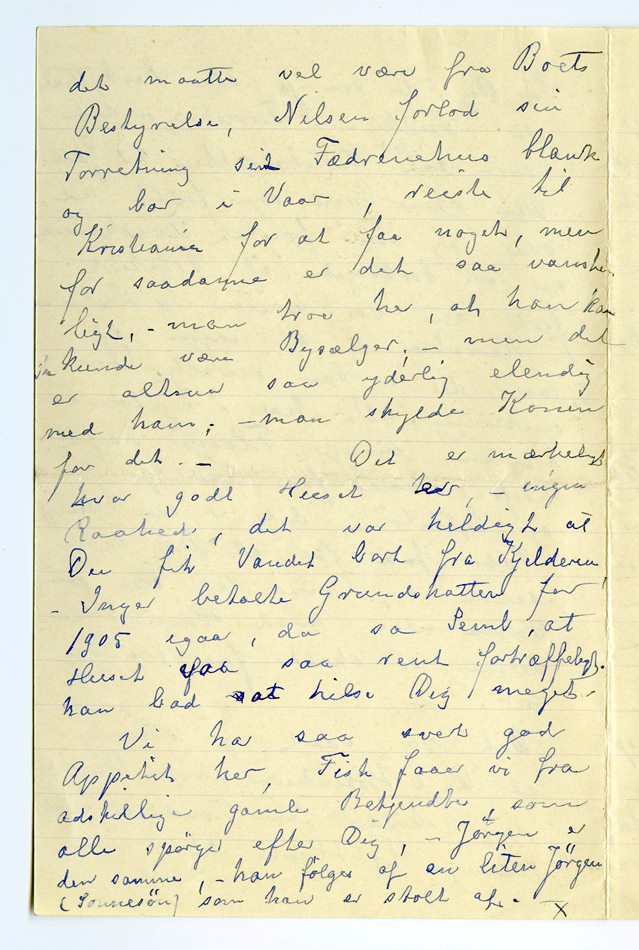 det maatte vel være fra Boets
Bestyrelse, Nilsen forlod sin
Forretning sit Fædrenehus blank
og bar i Vaar, reiste til
Kristiania for at faa noget, men
for saadanne er det saa vanske
ligt, – man troe her, at han kan
kunde være Bysælger; – men det
er altsaa saa yderlig elendig
med ham; – man skylde Konen
for det. – Det er mærkeligt
hvor godt Huset er, – ingen
Raahed, det var heldigt at
Du fik Vandet bort fra Kjelderen,
– Inger betalte Grundskatten for
1905 igaar, da sa Peml, at
Huset saa rent fortræffeligt.
han bad at hilse Dig meget.
Vi har saa svært god
Appetit her, Fisk faaer vi fra
adskillige gamle Bekjendte, som
alle spørger efter Dig, – Jörgen er
den samme, – han fölges af en liten Jörgen
(Sonnesön) som han er stolt af. – x